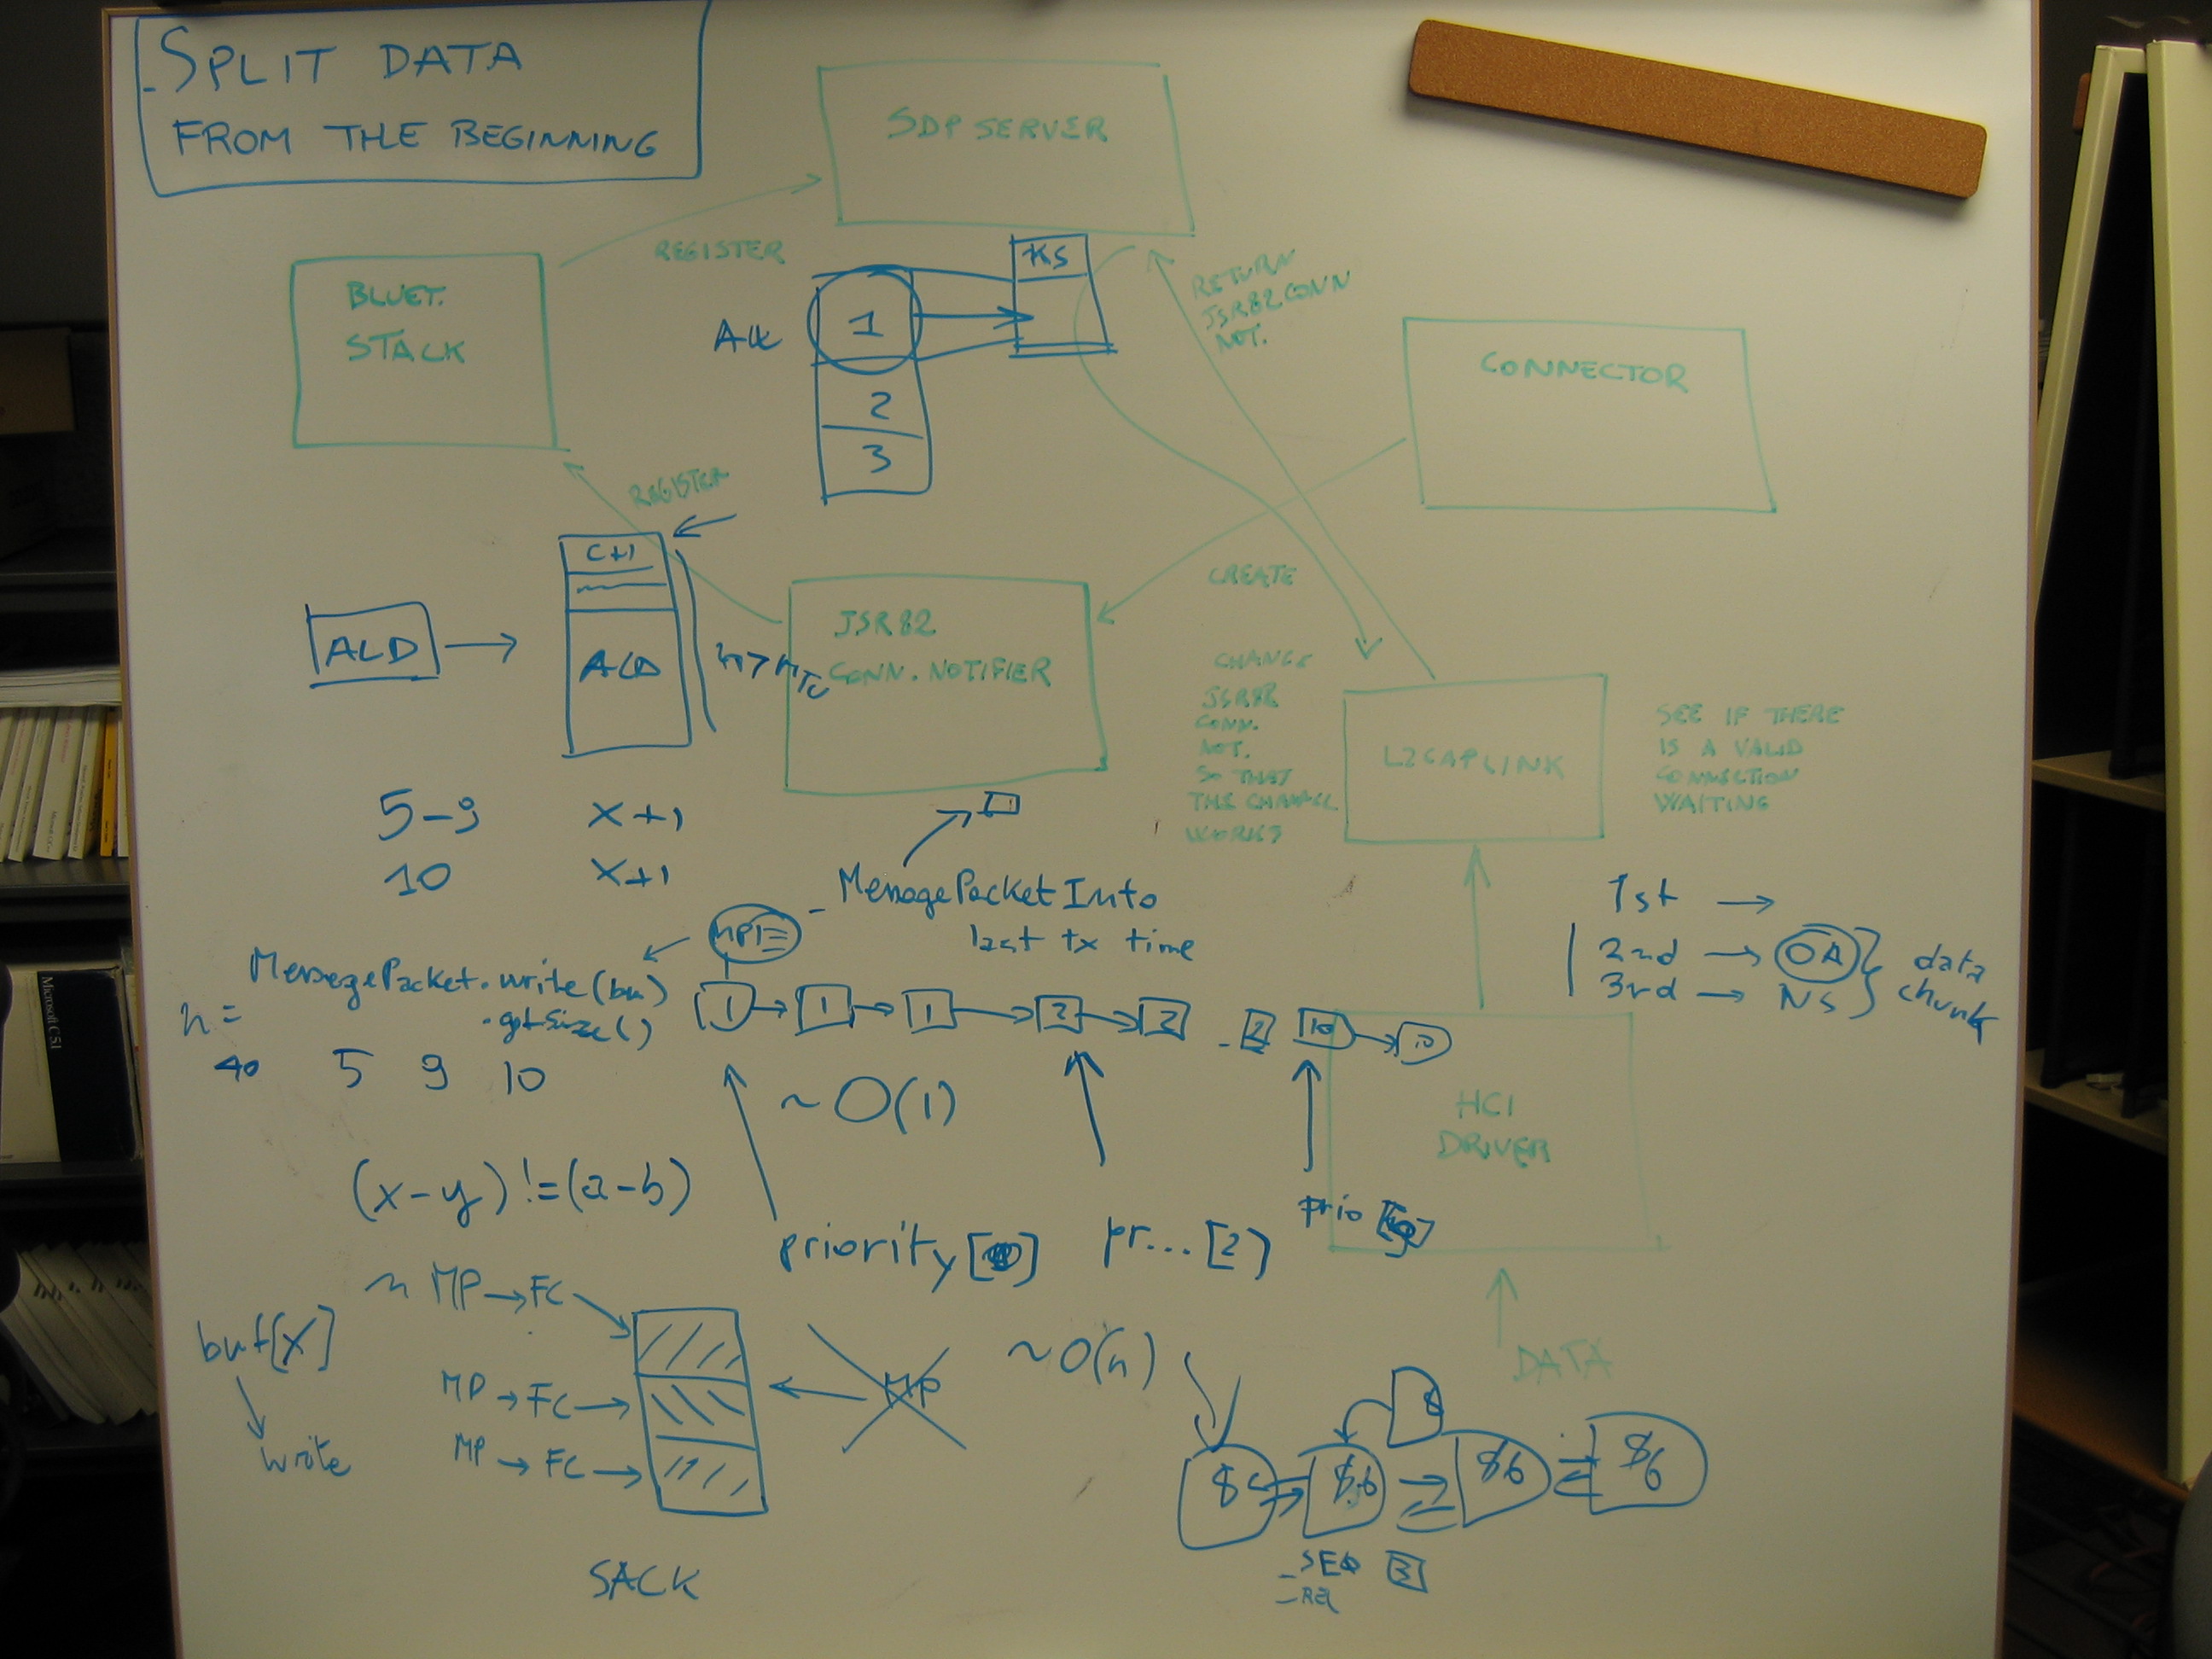 SPLIT DATA
FROM THE BEGINNING
SDP SERVER
REGISTER
BLUET.
STACK
KS
1
2
3
RETURN
JSR82 CONN
NOT.
CONNECTOR
REGISTER
C+1
ALD
ALD
JSR82
CONN. NOTIFIER
CREATE
CHANGE
JSR82
CONN.
NOT.
SO THAT
THE CHANNEL
WORKS
L2CAPLINK
SEE IF THERE
IS A VALID
CONNECTION
WAITING
5-9 x+1
10 x+1
MessagePacketInfo
last tx time
MPI
MessagePacket.write(buf)
.getSize()
n =
40 5 9 10
1 1 1 2 2 2 10 10
1st →
2nd → OA
3rd → NS
data
chunk
~O(1)
HCI
DRIVER
(x-y) != (a-b)
priority[ ]
pr...[2]
prio
n MP → FC
MP → FC
MP → FC
MP
buf[x]
write
~O(n)
DATA
SEQ 3
REL
SACK
Microsoft C 5.1